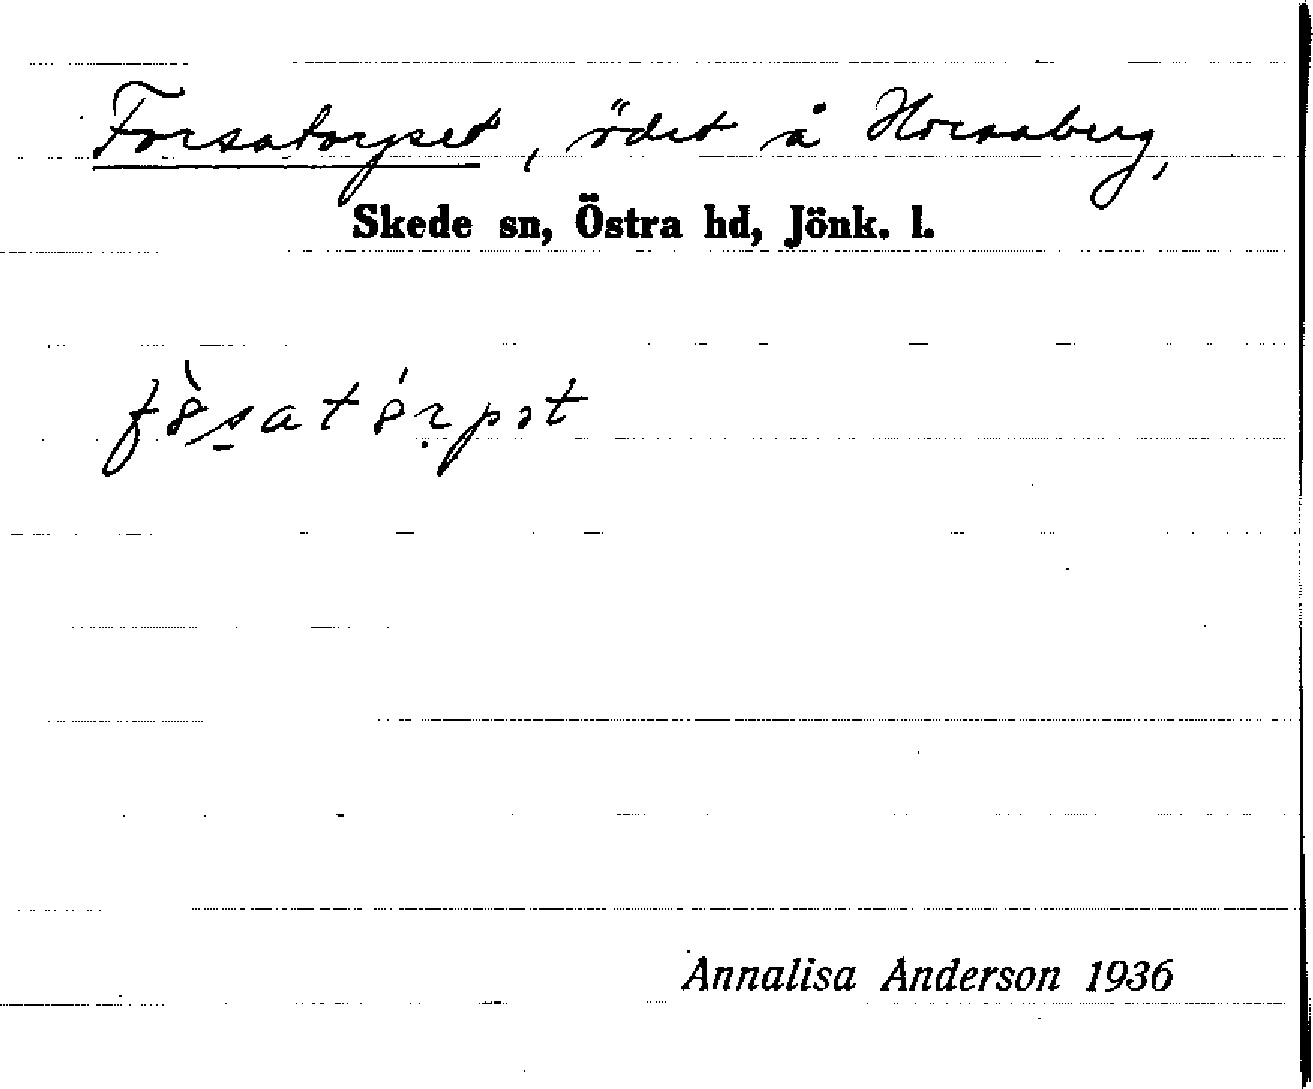 Forsatorpet, ödet å Hornaberg,
Skede sn, Östra hd, Jönk. l.
f8̀s̠at8́ṛpət
Annalisa Anderson 1936